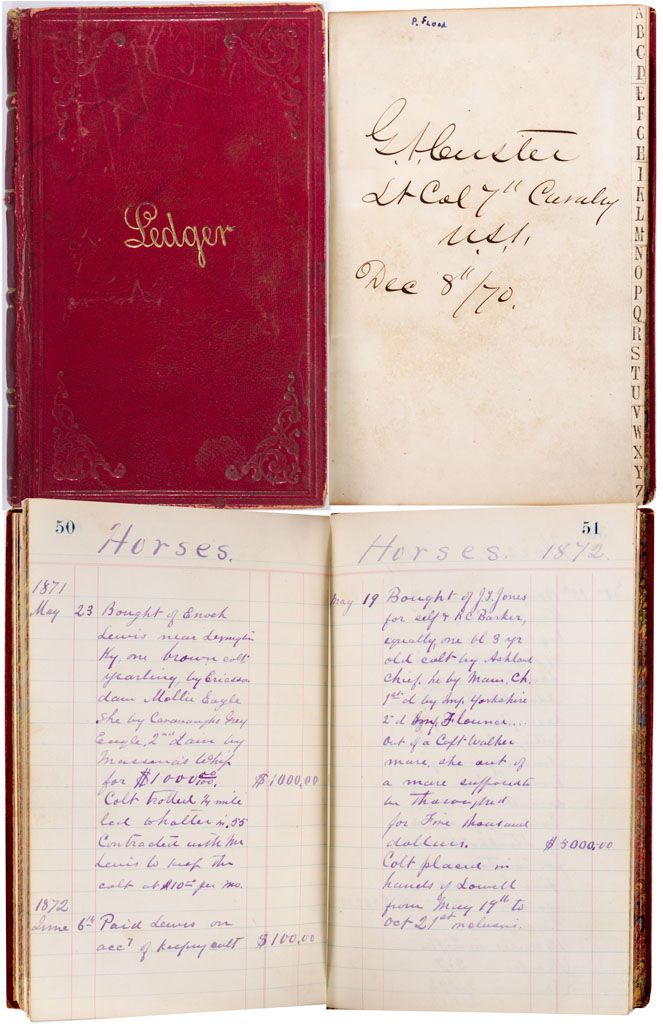 Ledger
P. Flood
G. A. Custer
Lt Col 7th Cavalry
U.S.A.
Dec 8th/70.
A
B
C
D
E
F
G
H
I
K
L
M
N
O
P
Q
R
S
T
U
V
W
X
Y
Z
50
Horses.
1871
May 23 Bought of Enoch
Lewis near Lexington
Ky, one brown colt
yearling, by Ericsson
dam Mollie Eagle
she by Cavanaughs Grey
Eagle, 2nd dam by
Massena's Whip
for $1000.00 $1000.00
Colt trotted ¼ mile
led in .55
Contracted with Mr
Lewis to keep the
colt at $10 per mo.
1872
June 6th Paid Lewis on
acct of keeping colt $100.00
51
Horses. 1872.
May 19 Bought of J.T. Jones
for self & K C Barker,
equally, one bl 3 yr
old colt by Ashland
Chief, he by Mam. Ch.
1st d by Imp Yorkshire
2nd Imp. Flounce....
out of a Walker
mare, she out of
a mare supposed to
be thorobred
for Five thousand
dollars. $5000.00
Colt placed in
hands of Lowell
from May 19th to
Oct 21st inclusive.